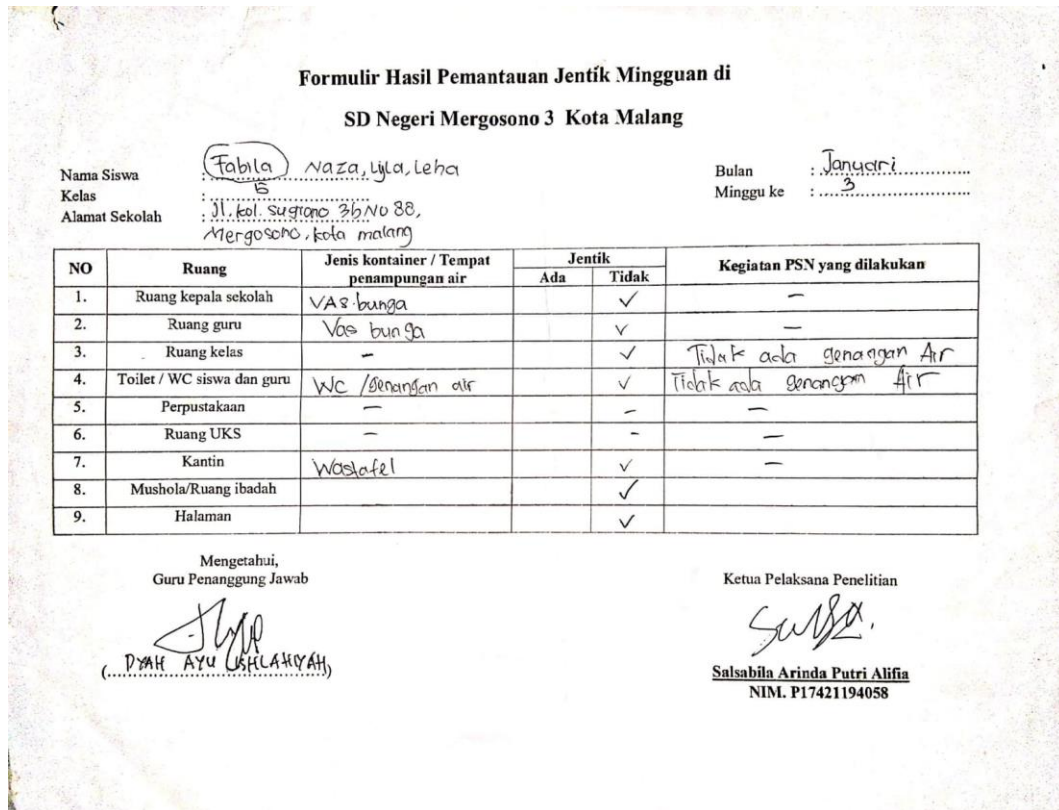 Formulir Hasil Pemantauan Jentik Mingguan di
SD Negeri Mergosono 3 Kota Malang
Nama Siswa : Fabila Naza, Lyla, Leha
Kelas : 5
Alamat Sekolah : Jl. kol. sugiono 3b No 88,
Mergosono, kota malang
Bulan : Januari
Minggu ke : 3
NO Ruang Jenis kontainer / Tempat penampungan air Jentik Kegiatan PSN yang dilakukan
Ada Tidak
1. Ruang kepala sekolah VAS bunga ✓ –
2. Ruang guru Vas bunga ✓ –
3. Ruang kelas – ✓ Tidak ada genangan Air
4. Toilet / WC siswa dan guru WC / Genangan air ✓ Tidak ada genangan Air
5. Perpustakaan – – –
6. Ruang UKS – – –
7. Kantin Wastafel ✓ –
8. Mushola/Ruang ibadah ✓
9. Halaman ✓
Mengetahui,
Guru Penanggung Jawab
(DYAH AYU USHLAHIYAH)
Ketua Pelaksana Penelitian
Salsabila Arinda Putri Alifia
NIM. P17421194058